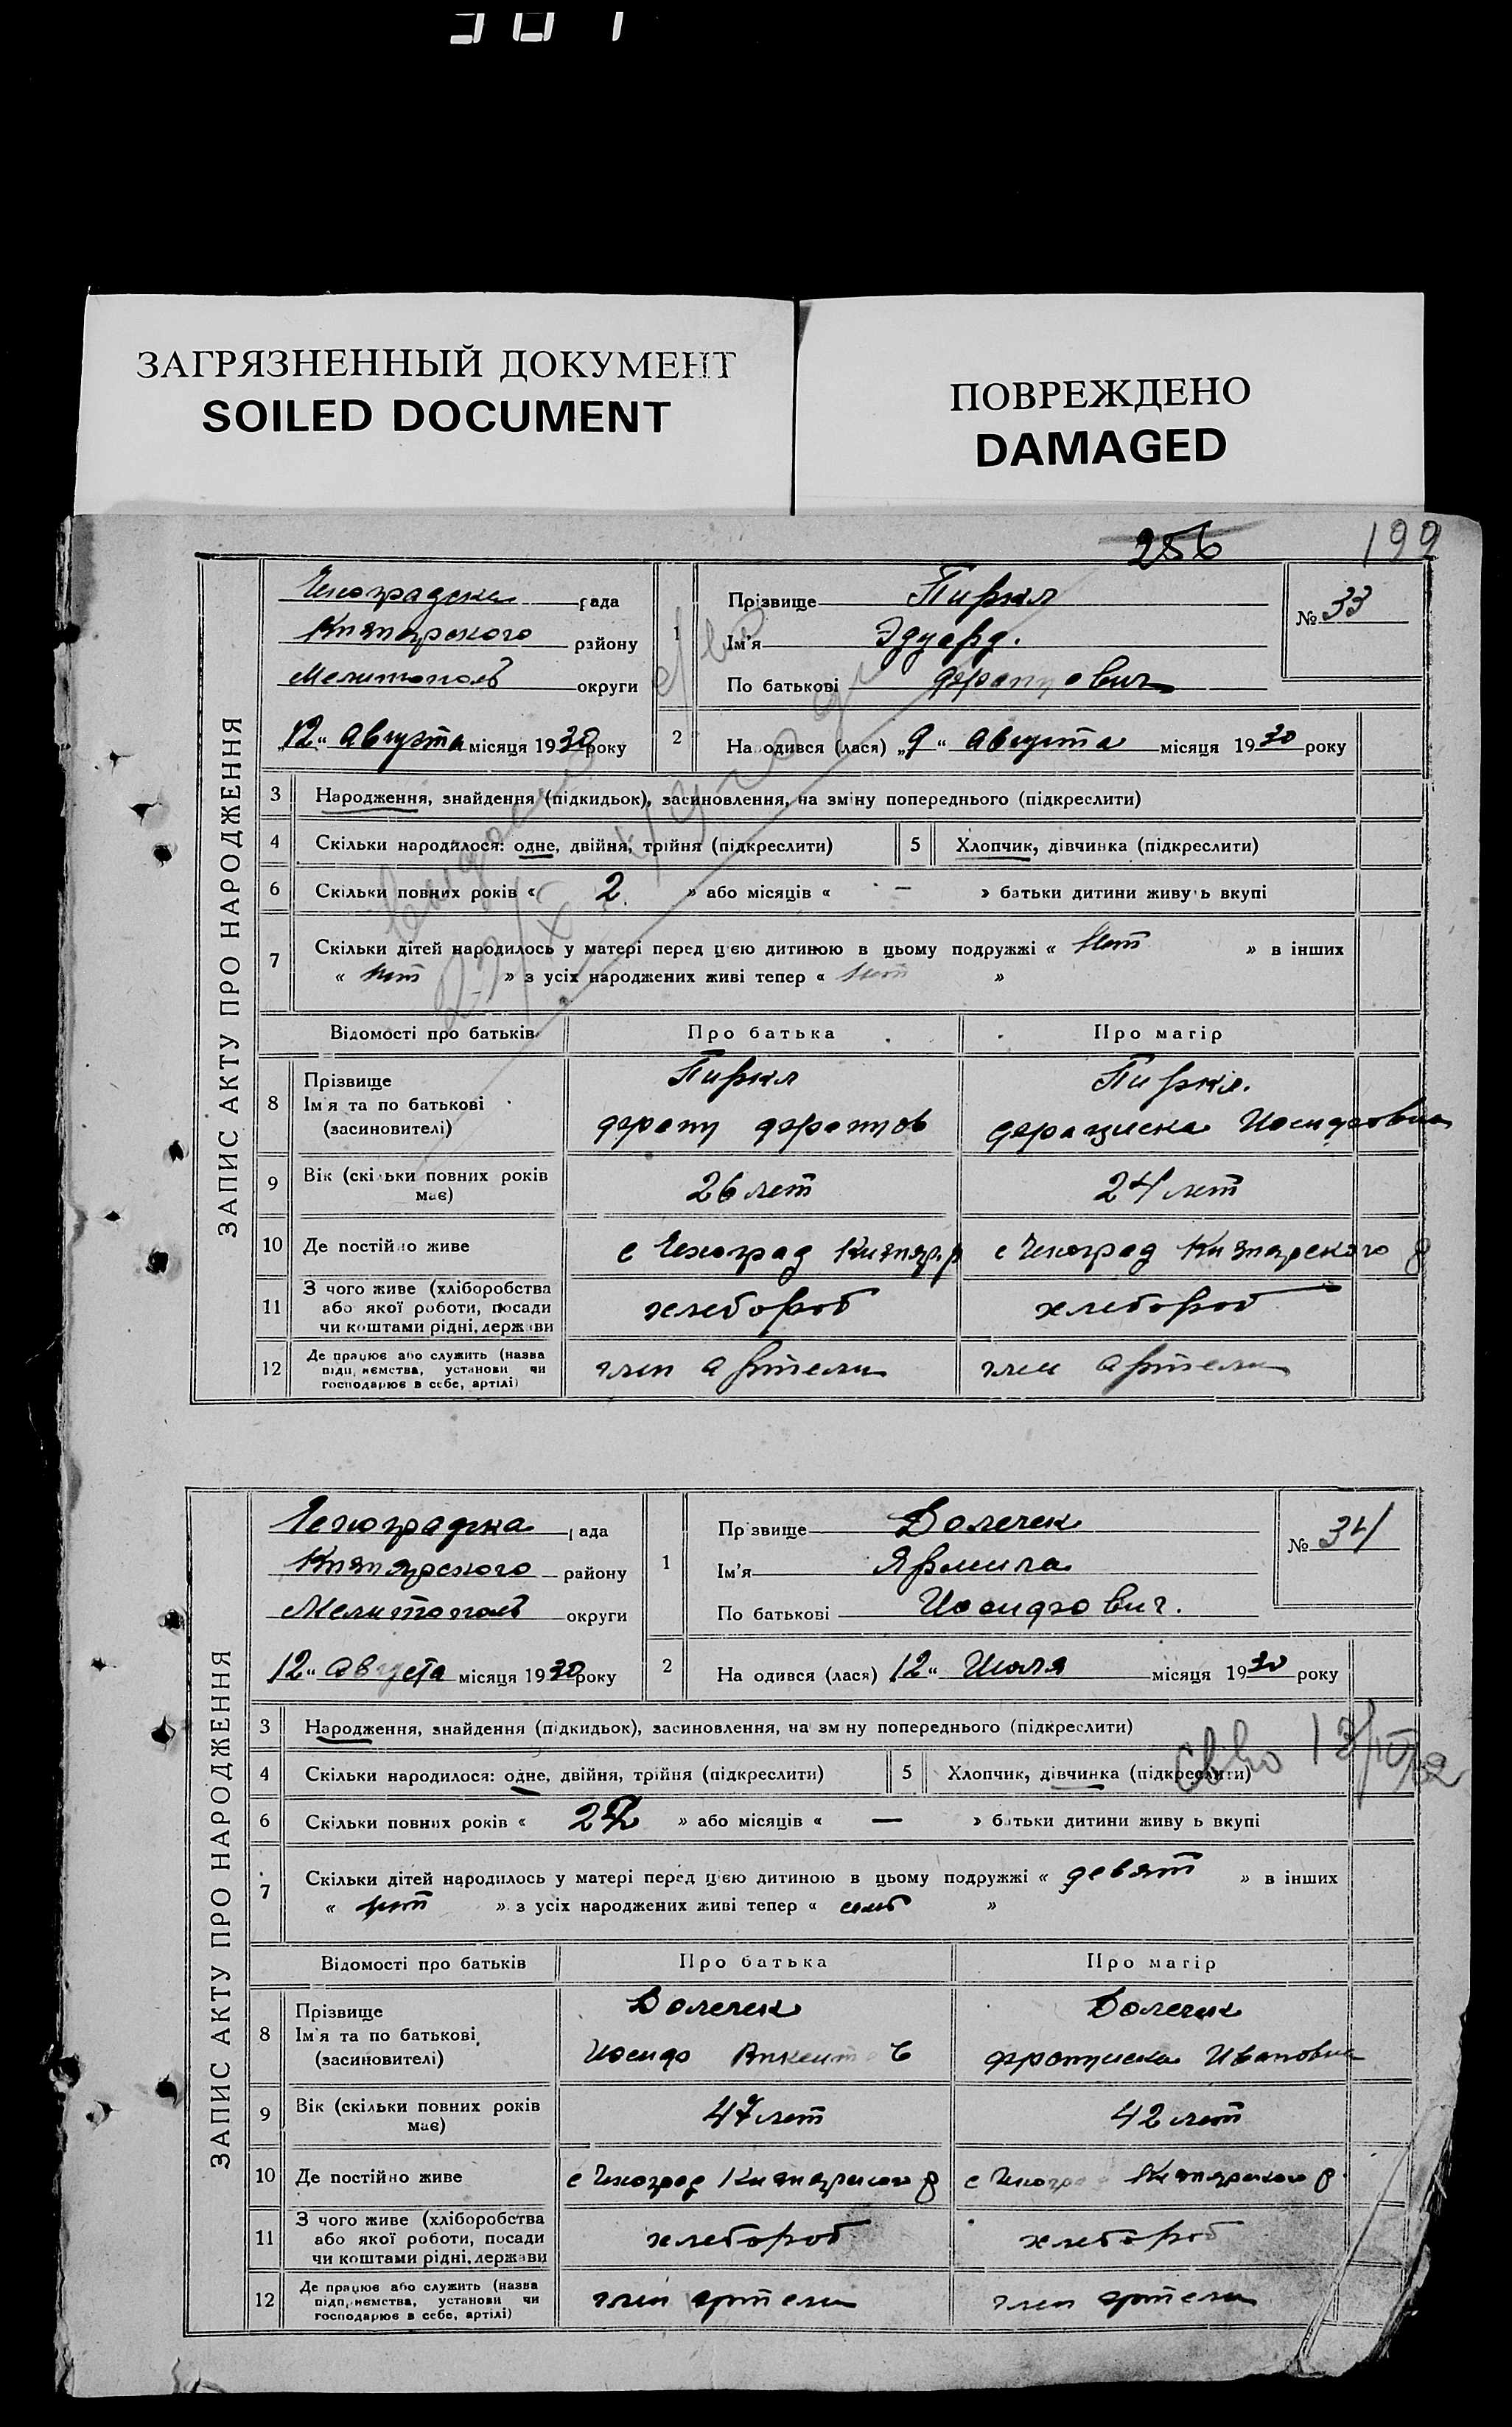 ЗАГРЯЗНЕННЫЙ ДОКУМЕНТ
SOILED DOCUMENT
ПОВРЕЖДЕНО
DAMAGED
256
199
ЗАПИС АКТУ ПРО НАРОДЖЕННЯ
Чехоградска рада
Кизиярского району
Мелитополь округи
„12“ Августа місяця 1930 року
1
Прізвище Пиркл
Ім'я Эдуард.
По батькові Францович
№ 33
2
Народився (лася) „9“ Августа місяця 1930 року
3 Народження, знайдення (підкидьок), засиновлення, на зміну попереднього (підкреслити)
4 Скільки народилося: одне, двійня, трійня (підкреслити) 5 Хлопчик, дівчинка (підкреслити)
6 Скільки повних років « 2 » або місяців « — » батьки дитини живуть вкупі
7 Скільки дітей народилось у матері перед цією дитиною в цьому подружжі « Нет » в інших
« Нет » з усіх народжених живі тепер « Нет »
Відомості про батьків Про батька Про матір
8 Прізвище Пиркл Пиркл.
Ім'я та по батькові (засиновителі) Франц Францов Франциска Иосифовна
9 Вік (скільки повних років має) 26 лет 24 лет
10 Де постійно живе с Чехоград Кизияр. р с Чехоград Кизиярского р
11 З чого живе (хліборобства або якої роботи, посади чи коштами рідні, держави хлебороб хлебороб
12 Де працює або служить (назва підприємства, установи чи господарює в себе, артілі) член артели член артели
ЗАПИС АКТУ ПРО НАРОДЖЕННЯ
Чехоградска рада
Кизиярского району
Мелитополь округи
12“ Августа місяця 1930 року
1
Прізвище Долечек
Ім'я Ярмила
По батькові Иосифович.
№ 34
2
Народився (лася) 12“ Июля місяця 1930 року
3 Народження, знайдення (підкидьок), засиновлення, на зміну попереднього (підкреслити)
4 Скільки народилося: одне, двійня, трійня (підкреслити) 5 Хлопчик, дівчинка (підкреслити)
6 Скільки повних років « » або місяців « — » батьки дитини живуть вкупі
7 Скільки дітей народилось у матері перед цією дитиною в цьому подружжі « девят » в інших
« нет » з усіх народжених живі тепер « семь »
Відомості про батьків Про батька Про матір
8 Прізвище Долечек Долечек
Ім'я та по батькові (засиновителі) Иосиф Франциска Ивановна
9 Вік (скільки повних років має) 47 лет 42 лет
10 Де постійно живе с Чехоград Кизиярского р с Чехоград Кизиярского р
11 З чого живе (хліборобства або якої роботи, посади чи коштами рідні, держави хлебороб хлебороб
12 Де працює або служить (назва підприємства, установи чи господарює в себе, артілі) член артели член артели